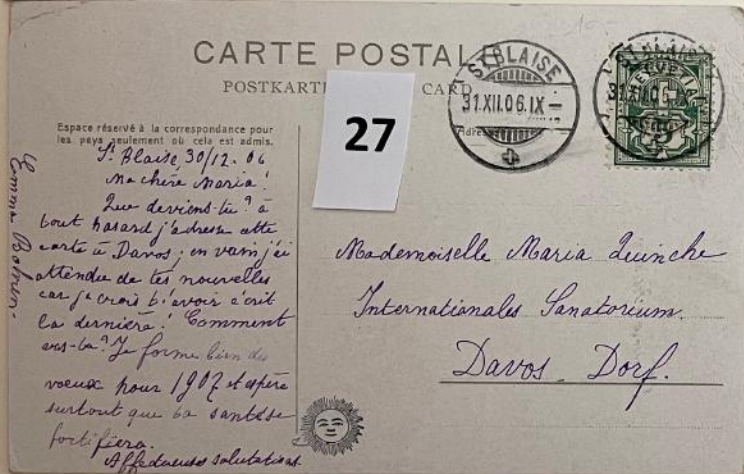 CARTE POSTAL
POSTKART CARD
27
ST BLAISE
31.XII.06.IX-
31.XII.06
Espace réservé à la correspondance pour
les pays seulement où cela est admis.
St Blaise, 30/12. 06
Ma chère Maria!
Que deviens-tu? à
tout hasard j'adresse cette
carte à Davos; en vain j'ai
attendu de tes nouvelles
car je crois t'avoir écrit
la dernière! Comment
vas-tu? Je forme bien des
voeux pour 1907 et espère
surtout que ta santé se
fortifiera.
Affectueuses salutations
Emma
Mademoiselle Maria Quinche
Internationales Sanatorium
Davos Dorf.